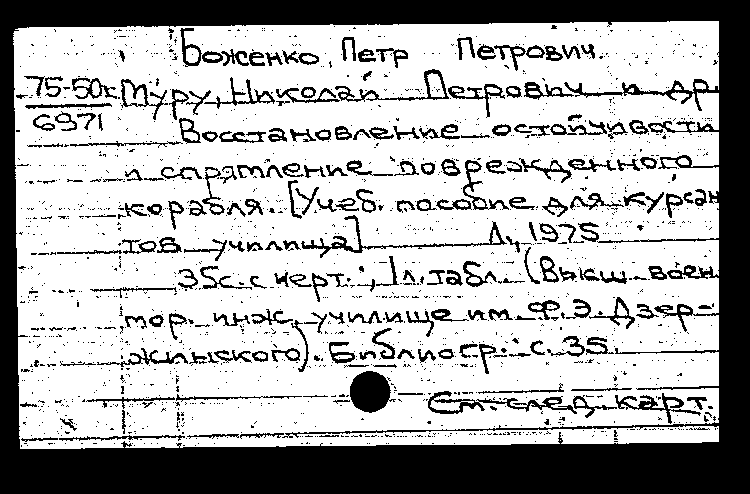 Боженко, Петр Петрович.
75-50к Муру, Николай Петрович и др.
6971
Восстановление остойчивости
и спрямление поврежденного
корабля. [Учеб. пособие для курсан
тов училища] Л., 1975
35с. с черт.; 1 л. табл. (Высш. воен.
мор. инж. училище им. Ф.Э. Дзер-
жинского). Библиогр.: с. 35.
См. след. карт.